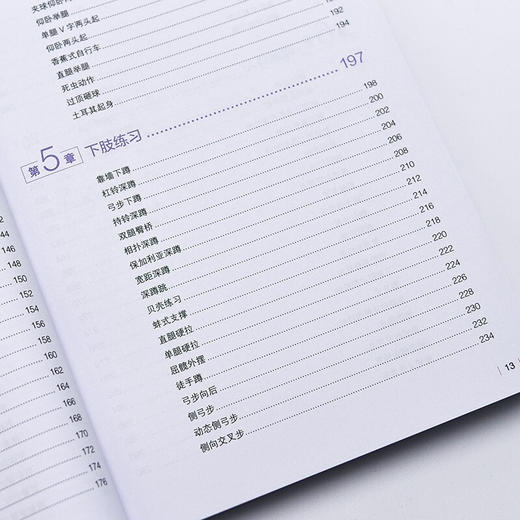 仰卧举腿
单腿V字两头起
仰卧两头起
香蕉式自行车
直腿举腿
死虫动作
过顶砸球 192
土耳其起身 194
第5章 下肢练习 197
靠墙下蹲 198
杠铃深蹲 200
弓步下蹲 202
持铃深蹲 204
双腿臀桥 206
相扑深蹲 208
保加利亚深蹲 210
宽距深蹲 212
深蹲跳 214
贝壳练习 216
蚌式支撑 218
直腿硬拉 220
单腿硬拉 222
屈髋外摆 224
徒手蹲 226
弓步向后 228
侧弓步 230
动态侧弓步 232
侧向交叉步 234
13
146
148
150
152
154
156
158
160
162
164
166
168
170
172
174
176